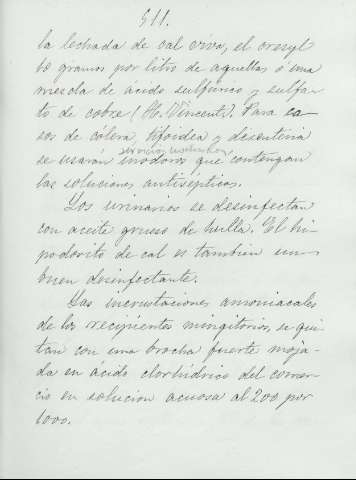 511.
la lechada de cal viva, el cresyl
60 gramos por litro de aquellas ó una
mezcla de ácido sulfúrico y sulfa-
to de cobre (H. Vincent). Para ca-
sos de cólera, tifoidea y disenteria
servicios
se usarán inodoros que contengan
las soluciones antisépticas.
Los urinarios se desinfectan
con aceite grueso de hulla. El hi-
poclorito de cal es tambien un
buen desinfectante.
Las incrustaciones amoniacales
de los recipientes mingitorios, se qui-
tan con una brocha fuerte moja-
da en acido clorhídrico del comer-
cio en solucion acuosa al 200 por
1000.